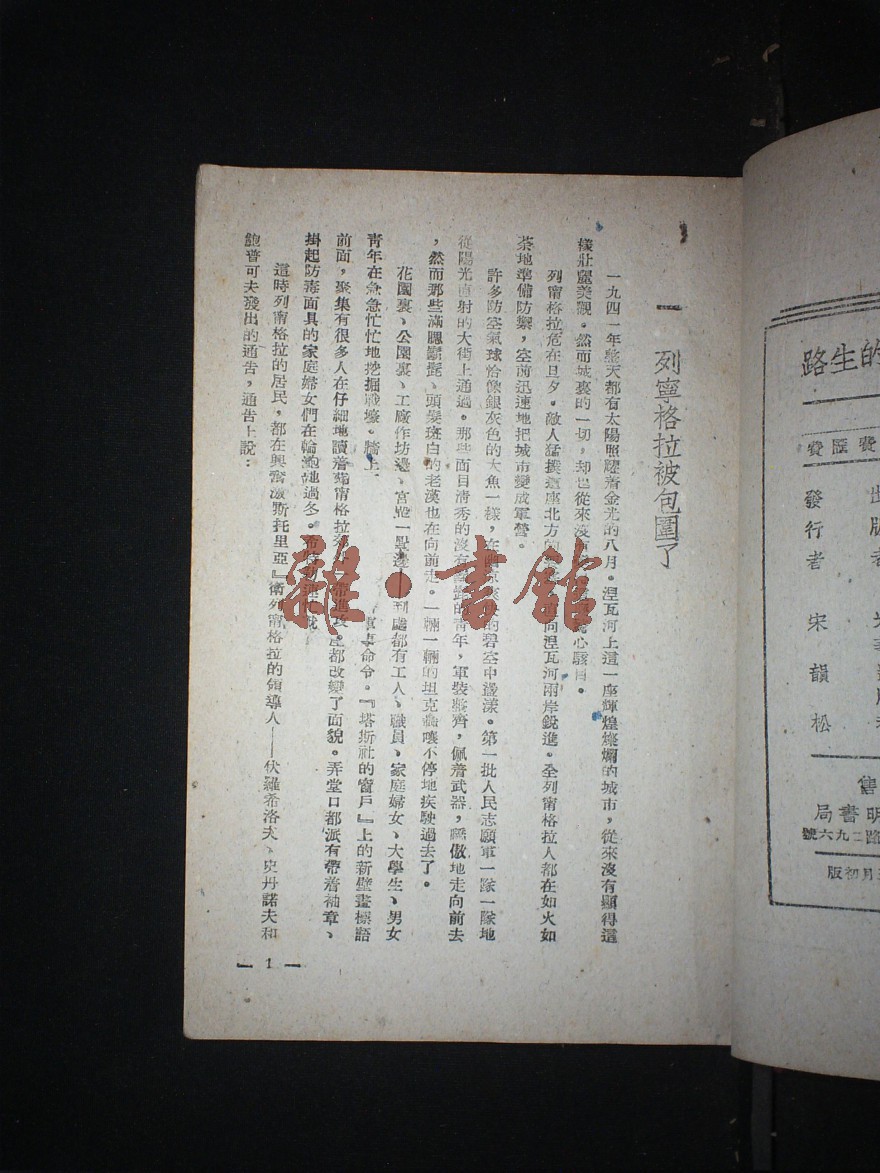 一 列寧格拉被包圍了
一九四一年整天都有太陽照耀着金光的八月。涅瓦河上這一座輝煌燦爛的城市，從來沒有顯得這
樣壯麗美觀。然而城裏的一切，却也從來沒 心駭目。
列甯格拉危在旦夕。敵人猛撲這座北方的 直向涅瓦河兩岸銳進。全列甯格拉人都在如火如
荼地準備防禦，空前迅速地把城市變成軍營。
許多防空氣球恰像銀灰色的大魚一樣，在 的碧空中盪漾。第一批人民志願軍一隊一隊地
從陽光直射的大街上通過。那些面目清秀的沒有 的青年，軍裝整齊，佩着武器，驕傲地走向前去
，然而那些滿腮鬍髭、頭髮斑白的老漢也在向前走。一輛一輛的坦克轟嚷不停地疾駛過去了。
花園裏、公園裏、工廠作坊邊、宮殿 到處都有工人、職員、家庭婦女、大學生、男女
青年在急急忙忙地挖掘戰壕。牆上 軍事命令。『塔斯社的窗戶』上的新壁畫標語
前面，聚集有很多人在仔細地讀着 都改變了面貌。弄堂口都派有帶着袖章、
掛起防毒面具的家庭婦女們在輪
這時列甯格拉的居民，都在興奮 衛列甯格拉的領導人——伏羅希洛夫、史丹諾夫和
鮑普可夫發出的通告，通告上說：
— 1 —
的生路
費匯費
出版者
發行者 宋韻松
售
明書局
路二九六號
月初版
雜·書館